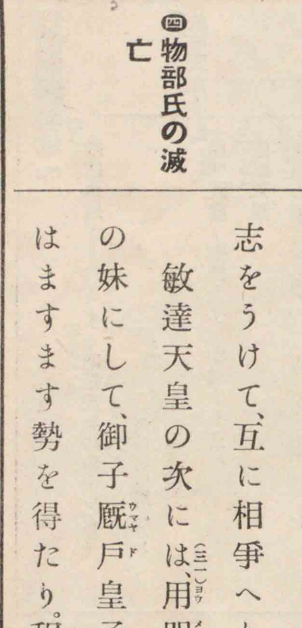 ㊃物部氏の滅
亡
志をうけて、互に相爭へ
敏達天皇の次には、用
の妹にして、御子厩戸皇
はますます勢を得たり。